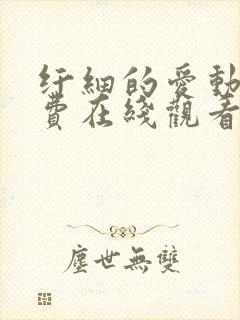 纡細的愛動
費在綫觀看
塵世無雙